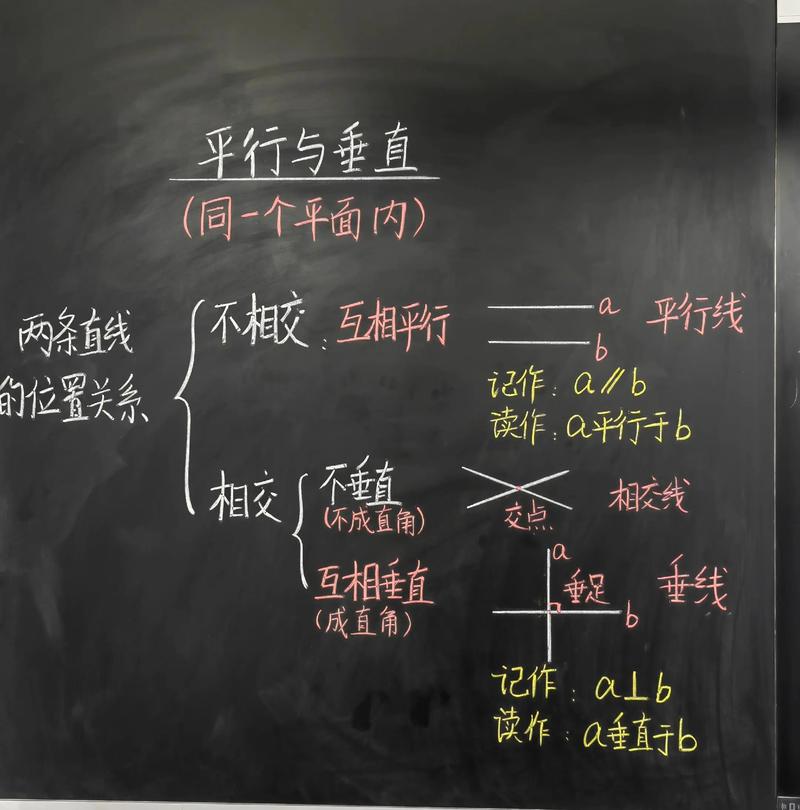 平行与垂直
(同一个平面内)
两条直线
的位置关系
不相交:互相平行
a
b
平行线
记作:a∥b
读作:a平行于b
相交
不垂直
(不成直角)
交点
相交线
互相垂直
(成直角)
a
垂足
b
垂线
记作:a⊥b
读作:a垂直于b